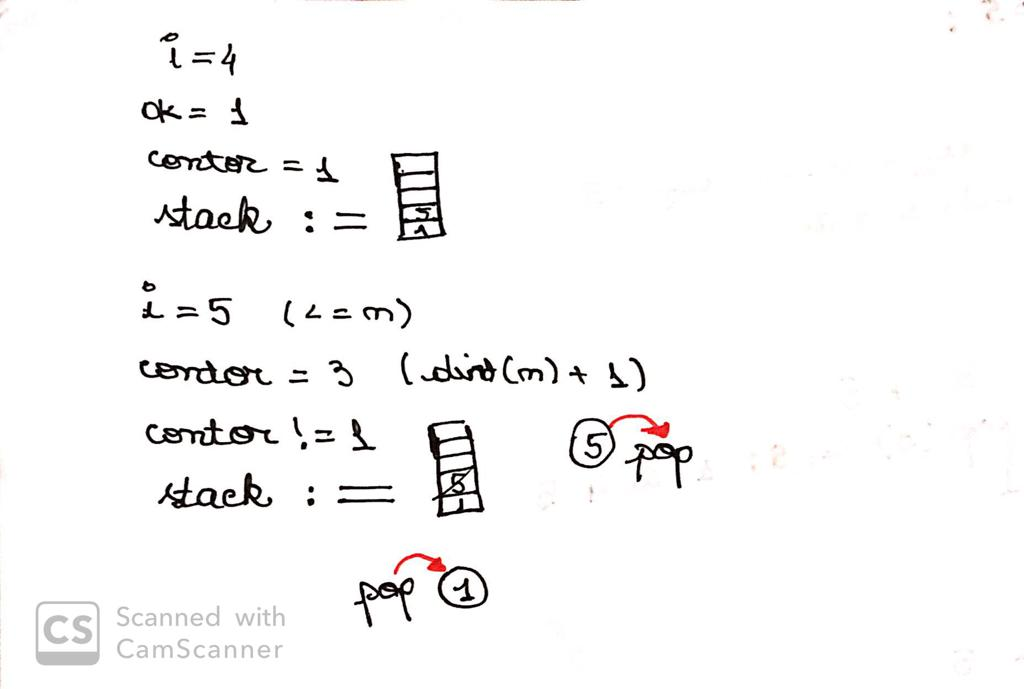 i = 4
ok = 1
contor = 1
stack :=
5
1
i = 5 (<= n)
contor = 3 (dist(n) + 1)
contor != 1
stack :=
5
1
5 pop
pop 1
CS Scanned with
CamScanner